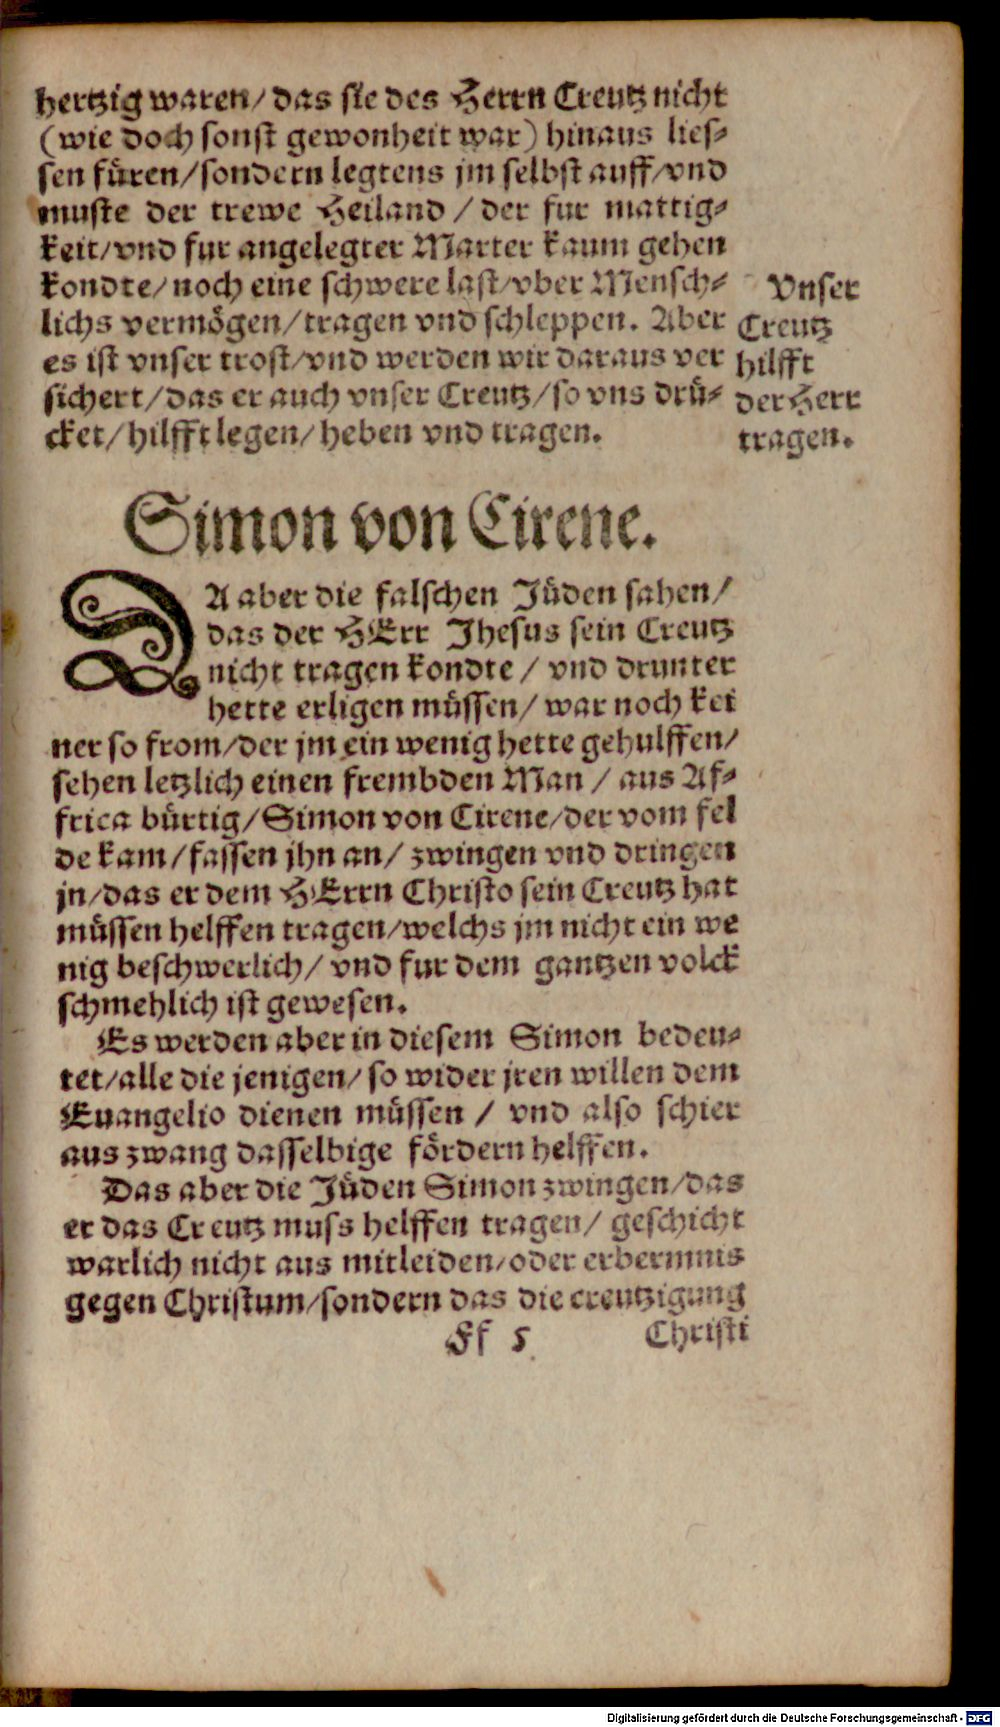 hertzig waren/ das sie des Herrn Creutz nicht
(wie doch sonst gewonheit war) hinaus lies-
sen füren/sondern legtens jm selbst auff/vnd
muste der trewe Heiland / der fur mattig-
keit/vnd fur angelegter Marter kaum gehen
kondte/noch eine schwere last/vber Mensch-
lichs vermögen/tragen vnd schleppen. Aber
es ist vnser trost/vnd werden wir daraus ver
sichert/das er auch vnser Creutz/so vns drü-
cket/hilfft legen/heben vnd tragen.
Vnser
Creutz
hilfft
der Herr
tragen.
Simon von Cirene.
DA aber die falschen Jüden sahen/
das der HErr Jhesus sein Creutz
nicht tragen kondte / vnd drunter
hette erligen müssen/ war noch kei
ner so from/der jm ein wenig hette gehulffen/
sehen letzlich einen frembden Man / aus Af-
frica bürtig/Simon von Cirene/der vom fel
de kam/fassen jhn an/ zwingen vnd dringen
jn/das er dem HErrn Christo sein Creutz hat
müssen helffen tragen/welchs jm nicht ein we
nig beschwerlich/ vnd fur dem gantzen volck
schmehlich ist gewesen.
Es werden aber in diesem Simon bedeu-
tet/alle die jenigen/ so wider jren willen dem
Euangelio dienen müssen / vnd also schier
aus zwang dasselbige fördern helffen.
Das aber die Jüden Simon zwingen/das
er das Creutz muss helffen tragen/ geschicht
warlich nicht aus mitleiden/oder erbermnis
gegen Christum/sondern das die creutzigung
Ff 5
Christi
Digitalisierung gefördert durch die Deutsche Forschungsgemeinschaft - DFG